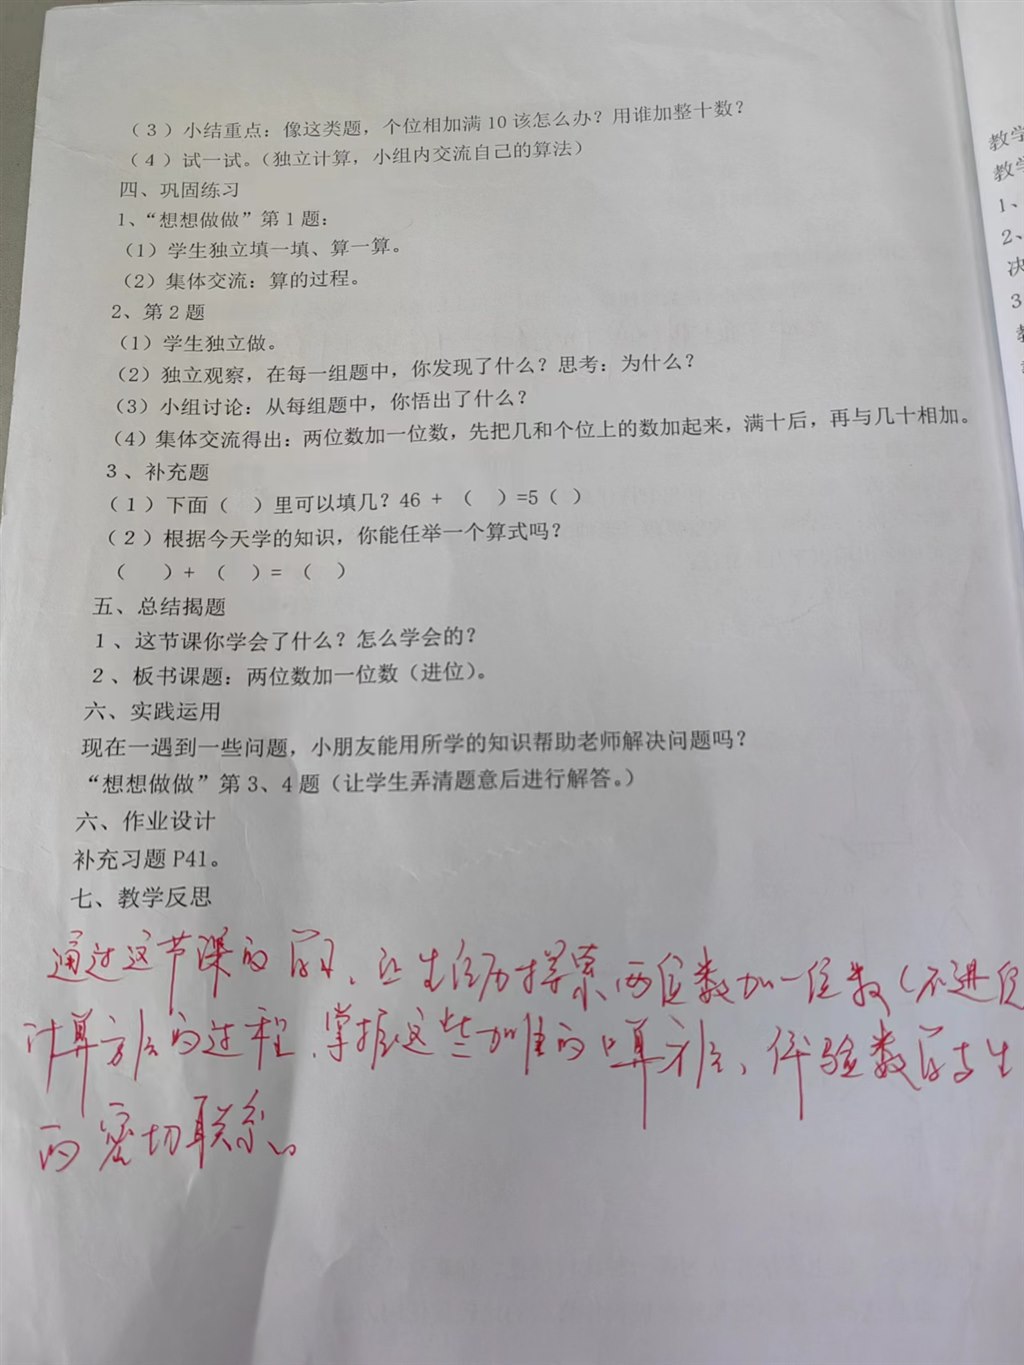 （3）小结重点：像这类题，个位相加满10该怎么办？用谁加整十数？
（4）试一试。（独立计算，小组内交流自己的算法）
四、巩固练习
1、“想想做做”第1题：
（1）学生独立填一填、算一算。
（2）集体交流：算的过程。
2、第2题
（1）学生独立做。
（2）独立观察，在每一组题中，你发现了什么？思考：为什么？
（3）小组讨论：从每组题中，你悟出了什么？
（4）集体交流得出：两位数加一位数，先把几和个位上的数加起来，满十后，再与几十相加。
3、补充题
（1）下面（ ）里可以填几？46 + （ ）=5（ ）
（2）根据今天学的知识，你能任举一个算式吗？
（ ）+ （ ）= （ ）
五、总结揭题
1、这节课你学会了什么？怎么学会的？
2、板书课题：两位数加一位数（进位）。
六、实践运用
现在一遇到一些问题，小朋友能用所学的知识帮助老师解决问题吗？
“想想做做”第3、4题（让学生弄清题意后进行解答。）
六、作业设计
补充习题P41。
七、教学反思
通过这节课的学习，让生经历探索两位数加一位数（不进位
计算方法的过程，掌握这些加法的口算方法，体验数学与生
的密切联系。
教学
教学
1、
2、
决
3